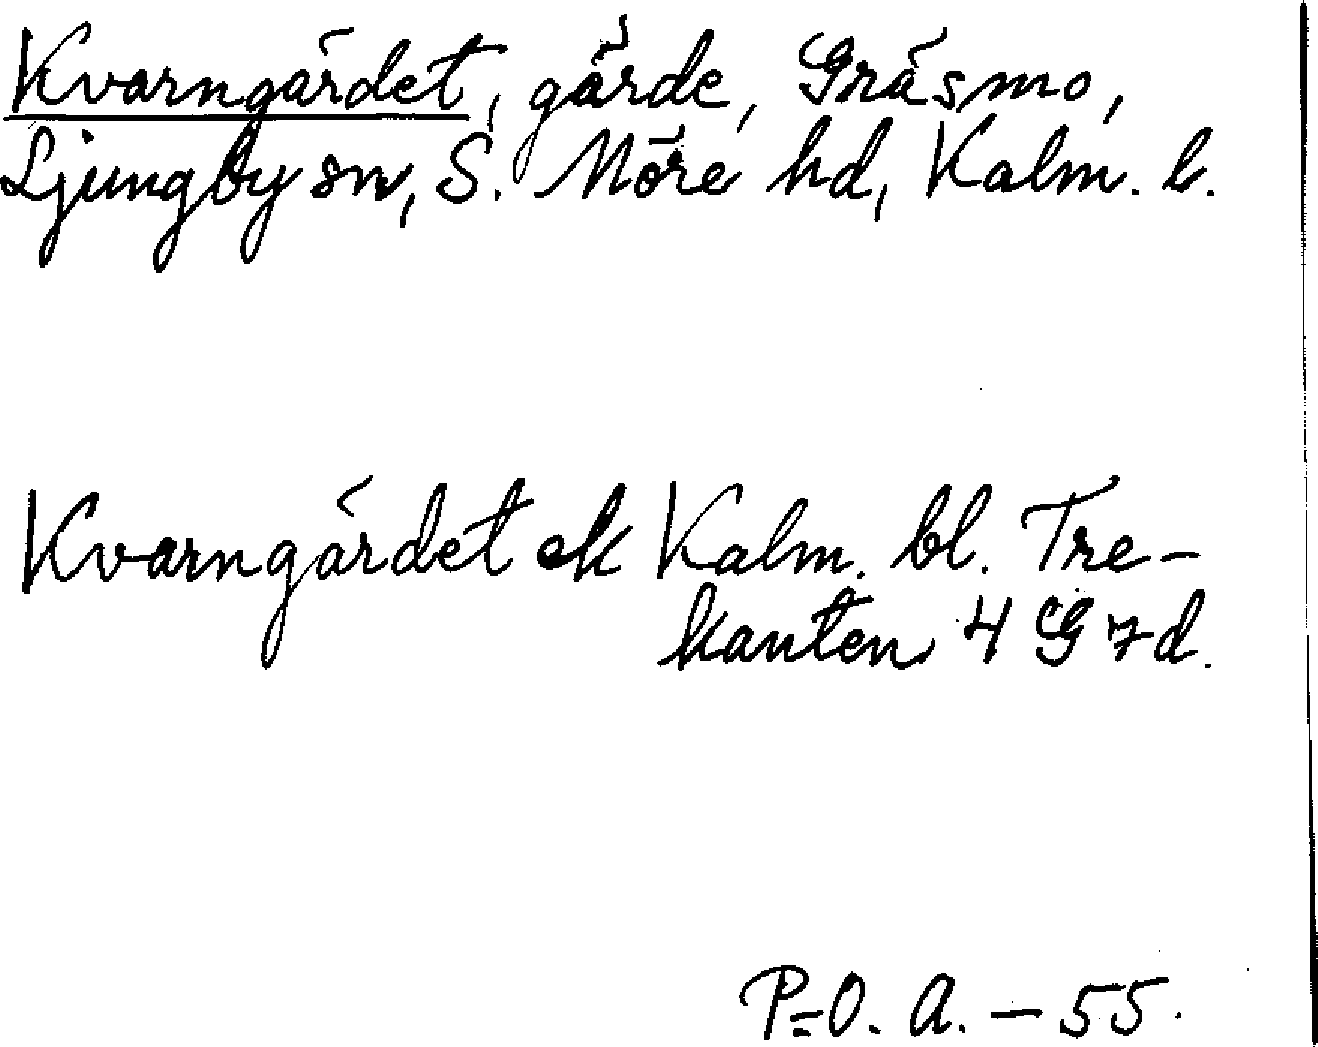 Kvarngärdet, gärde, Gräsmo,
Ljungby sn, S. Möre hd, Kalm. l.
Kvarngärdet ek Kalm. bl. Tre-
kanten 4 G 7d.
P=O. A. - 55.